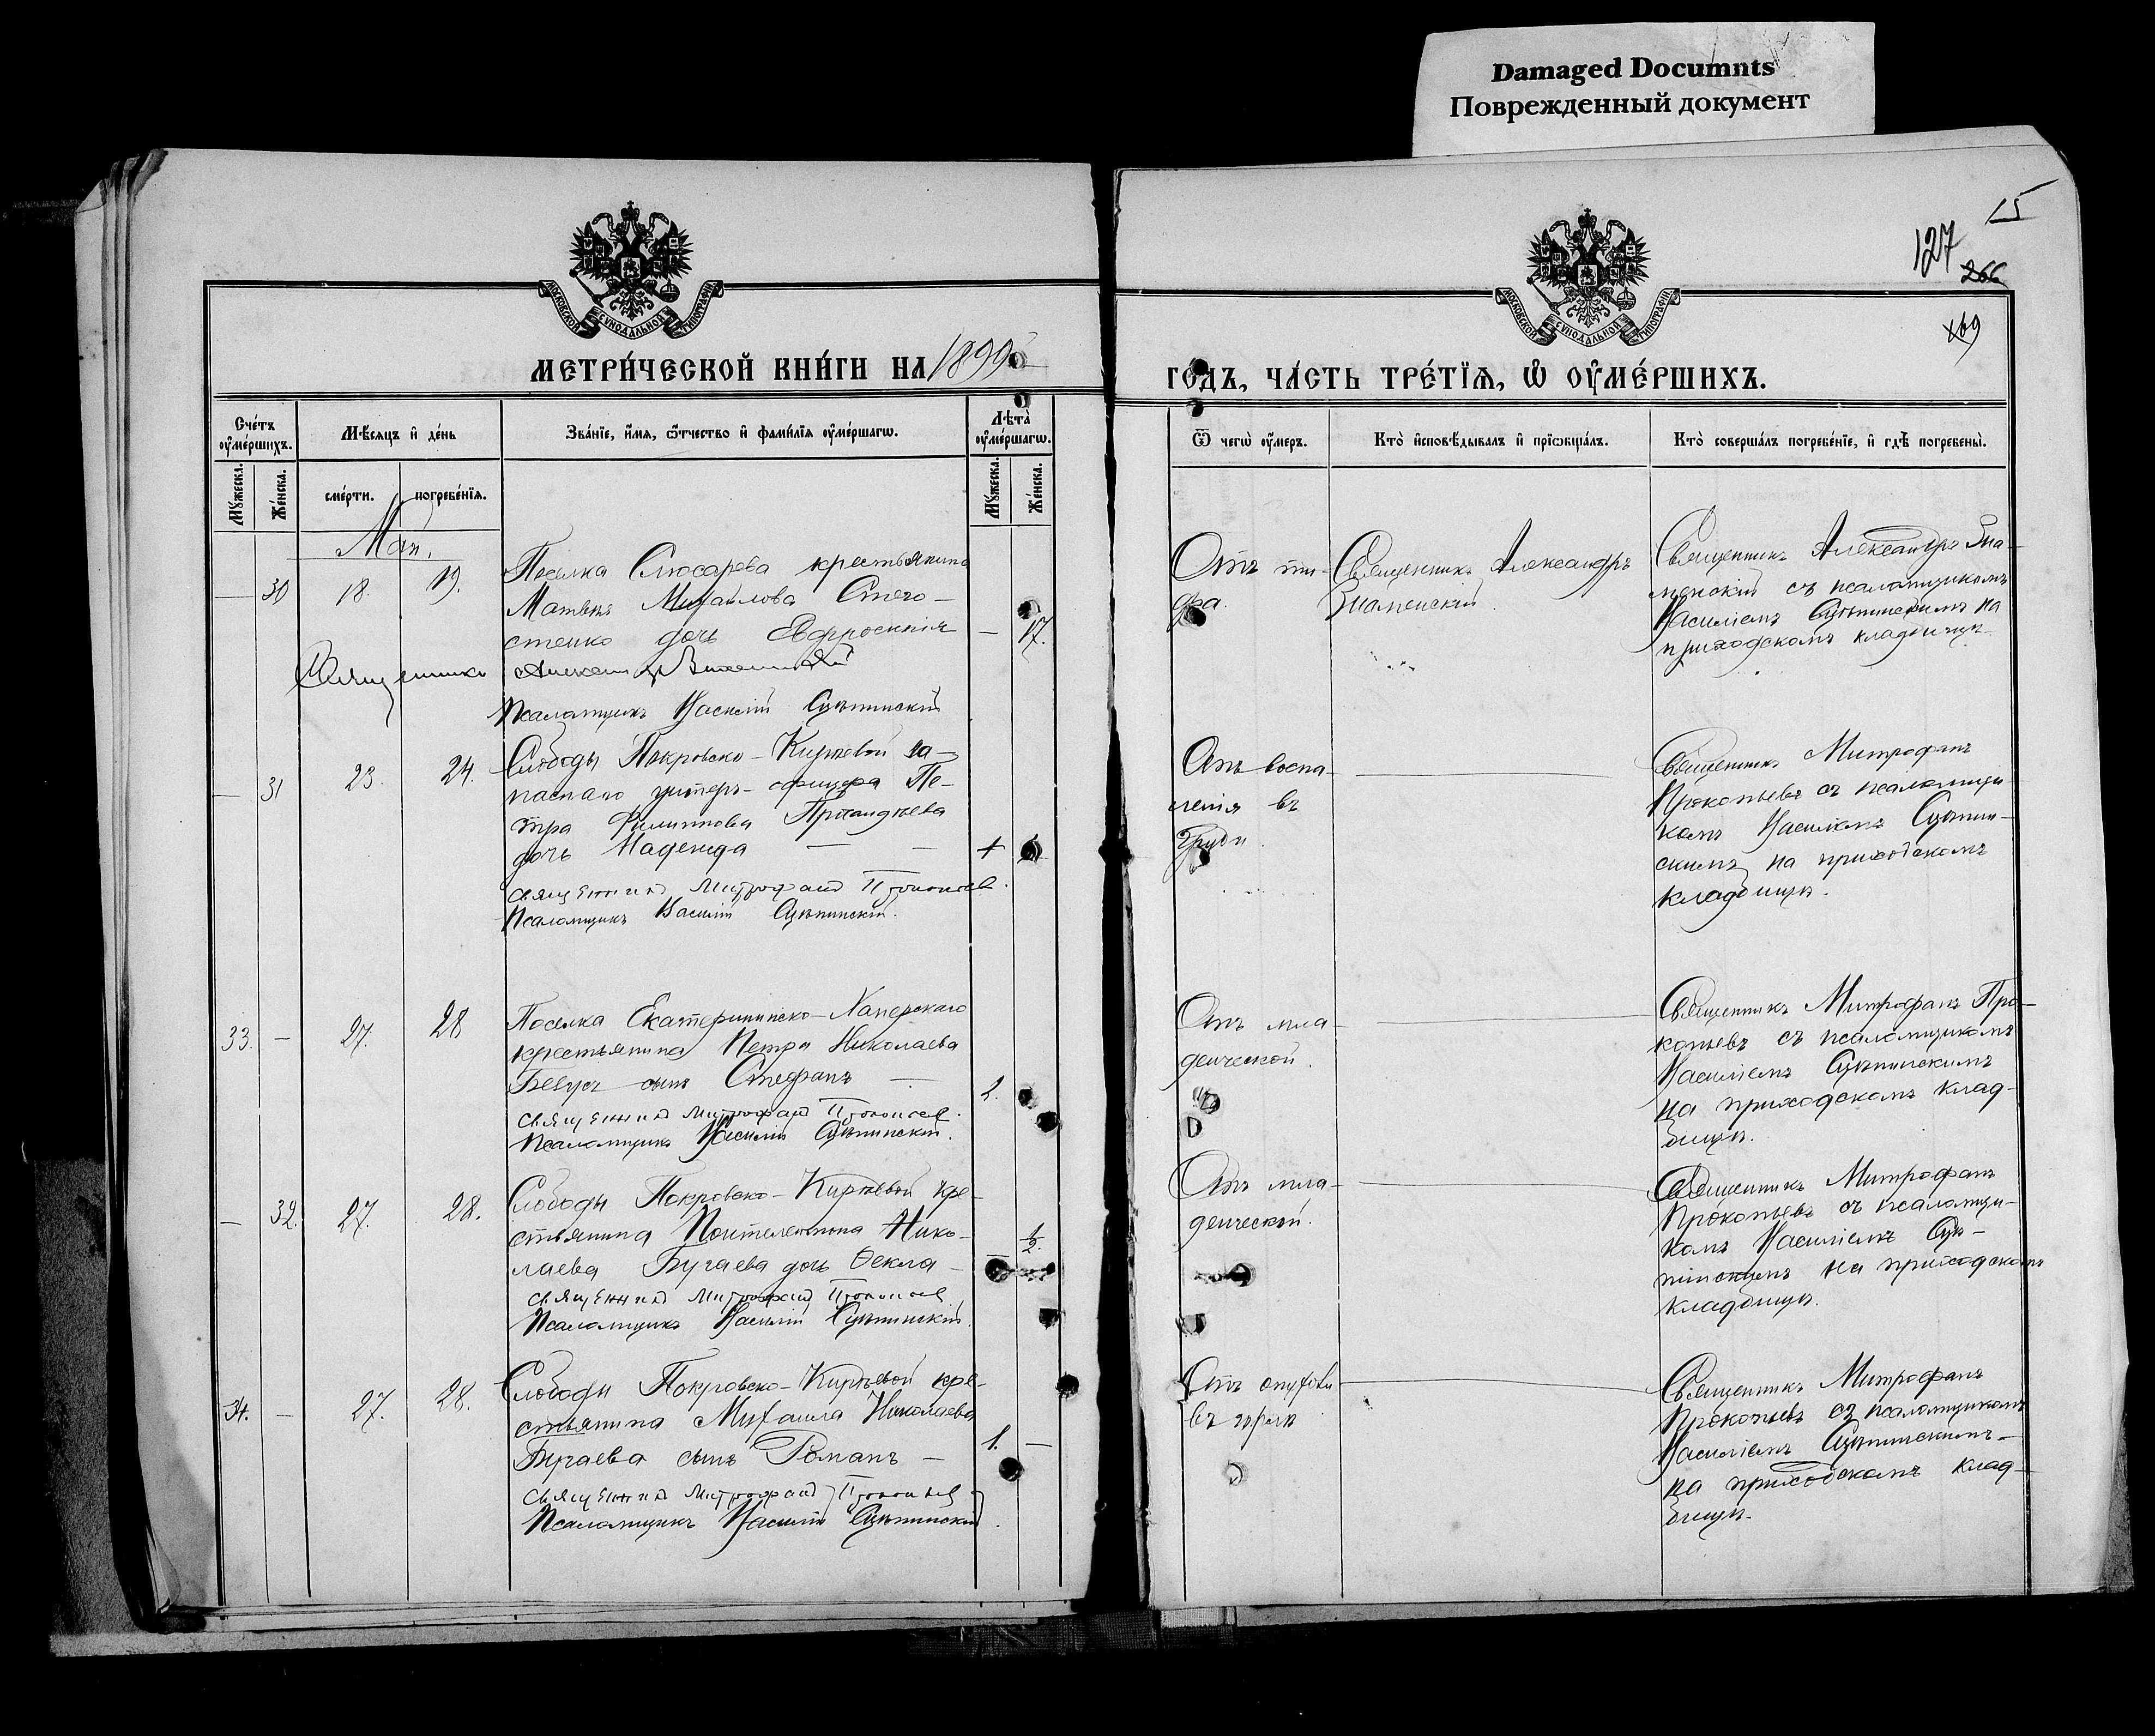 Damaged Documnts
Поврежденный документ
15
127
266
169
МОСКОВСКОЙ СУНОДАЛЬНОЙ ТИПОГРАФІИ
МОСКОВСКОЙ СУНОДАЛЬНОЙ ТИПОГРАФІИ
МЕТРИ́ЧЕСКОЙ КНИ́ГИ НА 1899
ГО́ДЪ, ЧА́СТЬ ТРЕ́ТІѦ, Ѡ ОУ҆МЕ́РШИХЪ.
Сче́тъ оу҆ме́ршихъ.
Мѣ́сяцъ и҆ де́нь
Зва́нїе, и҆́мя, ѻ҆́тчество и҆ фами́лїя оу҆ме́ршагѡ.
Лѣта̀ оу҆ме́ршагѡ.
Ѿ чегѡ̀ оу҆́меръ.
Кто̀ и҆сповѣ́дывалъ и҆ прїѡбща́лъ.
Кто̀ соверша́лъ погребе́нїе, и҆ гдѣ̀ погребены̀.
Мꙋ́жеска.
Же́нска.
сме́рти.
погребе́нїя.
Мꙋ́жеска.
Же́нска.
Май.
— 30 18. 19.
Поселка Слюсарева крестьянина
Матвѣя Михайлова Стего-
стенко дочь Евфросинія — 17.
Священникъ Александръ Знаменскій
Псаломщикъ Василій Сцѣпинскій
Отъ ти-
фа.
Священникъ Александръ
Знаменскій.
Священникъ Александръ Зна-
менскій съ псаломщикомъ
Василіемъ Сцѣпинскимъ на
приходскомъ кладбищѣ.
— 31 23. 24.
Слободы Покровско-Киреевой за-
паснаго унтеръ-офицера Пе-
тра Филиппова
дочь Надежда — —
Священникъ Митрофанъ Прокопьевъ.
Псаломщикъ Василій Сцѣпинскій.
Отъ воспа-
ленія въ
груди.
Священникъ Митрофанъ
Прокопьевъ съ псаломщи-
комъ Василіемъ Сцѣпин-
скимъ на приходскомъ
кладбищѣ.
33. — 27. 28
Поселка Екатерининско-Хаперскаго
крестьянина Петра Николаева
сынъ Стефанъ — 2.
Священникъ Митрофанъ Прокопьевъ.
Псаломщикъ Василій Сцѣпинскій.
Отъ мла-
денческой.
Священникъ Митрофанъ Про-
копьевъ съ псаломщикомъ
Василіемъ Сцѣпинскимъ
на приходскомъ клад-
бищѣ.
— 32. 27. 28.
Слободы Покровско-Киреевой кре-
стьянина Пантелеймона Нико-
лаева Бугаева дочь Ѳекла — 1/2.
Священникъ Митрофанъ Прокопьевъ
Псаломщикъ Василій Сцѣпинскій.
Отъ мла-
денческой.
Священникъ Митрофанъ
Прокопьевъ съ псаломщи-
комъ Василіемъ Сцѣ-
пинскимъ на приходскомъ
кладбищѣ.
34. — 27. 28.
Слободы Покровско-Киреевой кре-
стьянина Михаила Николаева
Бугаева сынъ Романъ — 1. —
Священникъ Митрофанъ Прокопьевъ
Псаломщикъ Василій Сцѣпинскій.
Отъ опухоли
въ горлѣ
Священникъ Митрофанъ
Прокопьевъ съ псаломщикомъ
Василіемъ Сцѣпинскимъ—
на приходскомъ клад-
бищѣ.